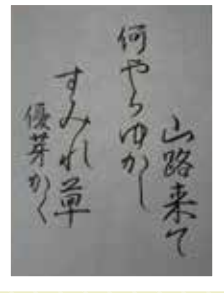 山路来て
何やらゆかし
すみれ草
優芽かく